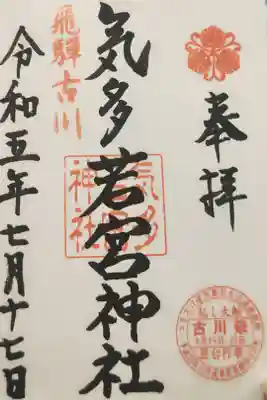 奉拝
気多若宮神社
気多
若宮
神社
飛騨古川
令和五年七月十七日
古川祭